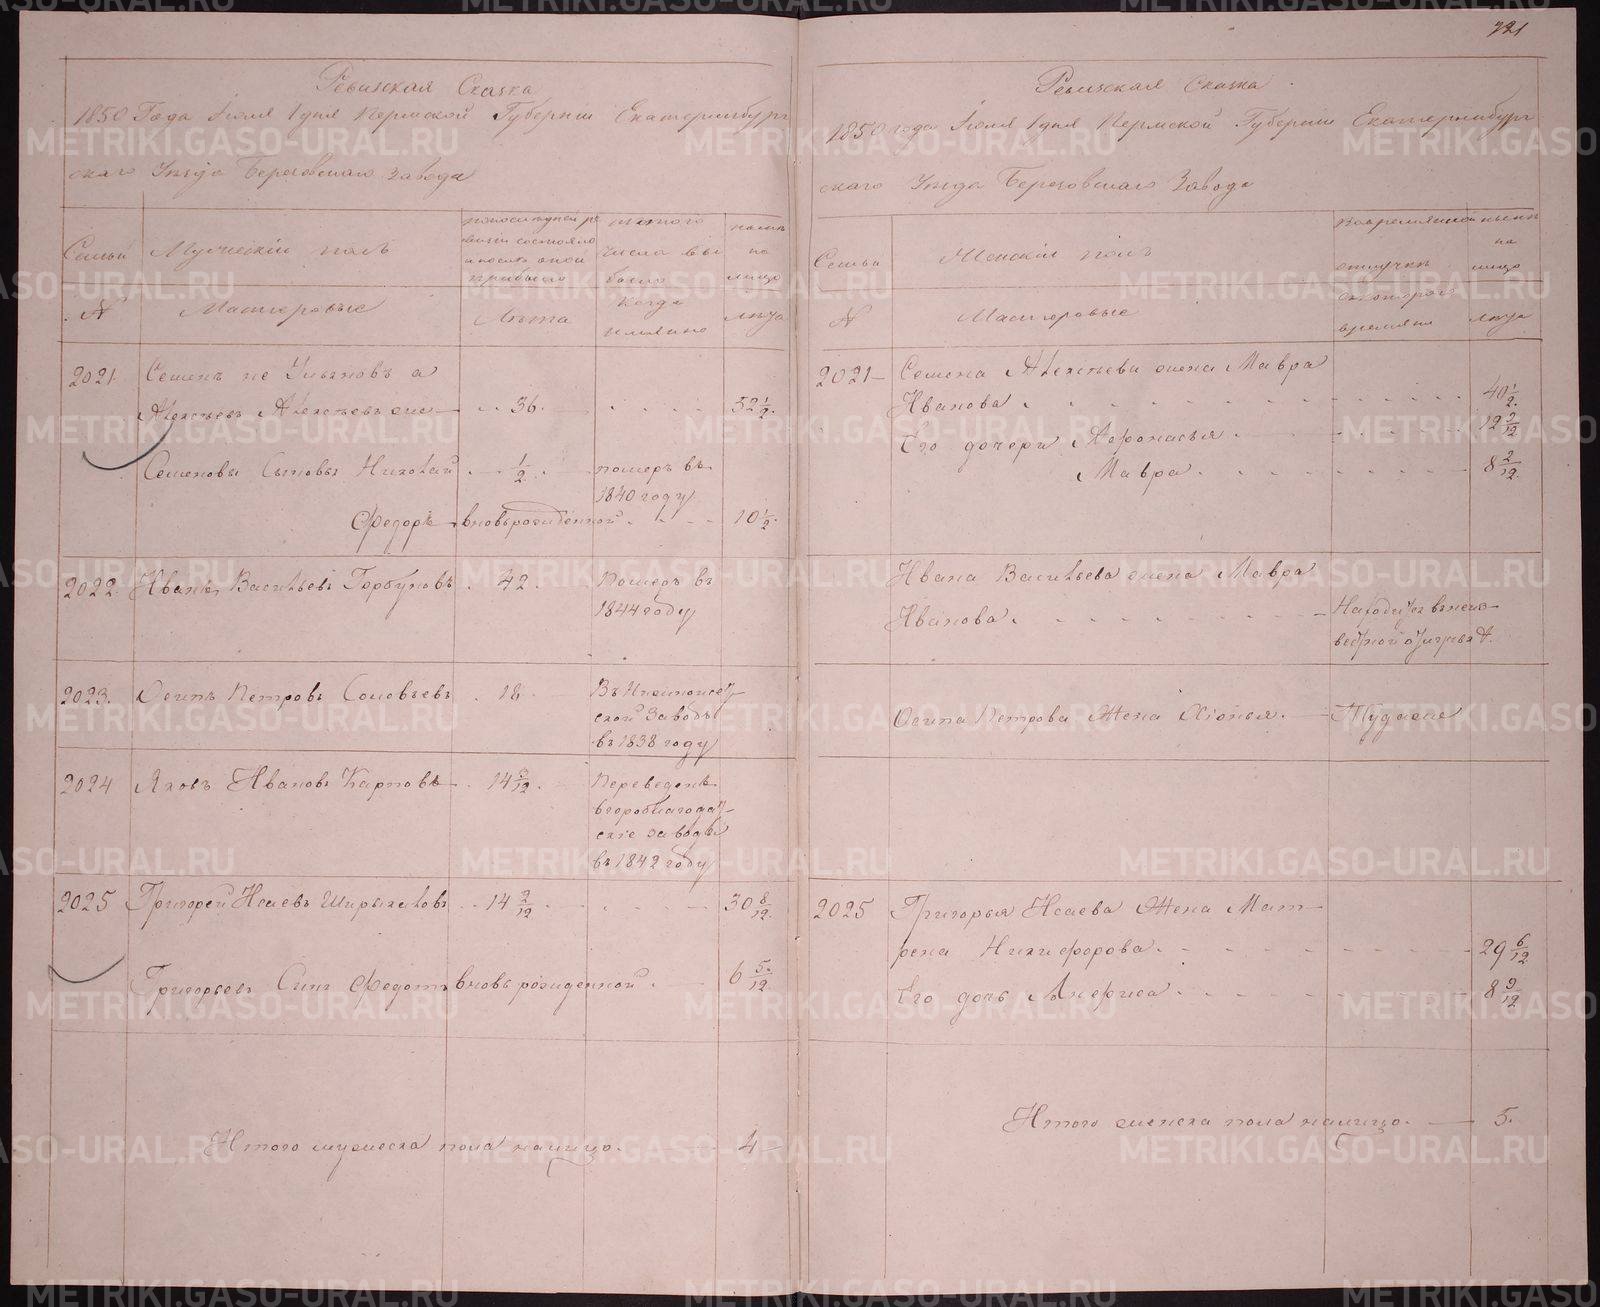 321
Ревизская Сказка
1850 Года Іюля 1 дня Пермской Губерніи Екатеринбург
скаго Уезда Березовскаго Завода
Семьи
Мужескій полъ
по последней ре
визіи состояло
и после оной
прибыло
изъ того
числа вы
было
ныне
на
лицо
№
Мастеровые
Лѣта
когда
имянно
лѣта
2021 Семенъ не Ульяновъ а
Алексѣевъ Алексѣевъ же 36. 52 1/2.
Семеновы Сыновья Николай 1/2 померъ въ
1840 году
Федоръ вновьрожденной 10 1/2.
2022. Иванъ Васильевъ Горбуновъ 42. Померъ въ
1844 году
2023. Осипъ Петровъ Соловьевъ 18
ской Заводъ
въ 1838 году
2024 Яковъ Ивановъ Карповъ 14 3/12. Переведенъ
вгороблагодат
скіе заводы
въ 1842 году
2025 Григорей Исаевъ Ширыкаловъ 14 2/12 30 8/12.
Григорьевъ Сынъ Федотъ вновьрожденной 6 5/12.
Итого мужеска пола налицо. 4
Ревизская Сказка
1850 года Іюля 1 дня Пермской Губерніи Екатеринбург
скаго Уезда Березовскаго Завода
Семьи
Женскій полъ
вовременной
отлучке
ныне
на
лицо
№
Мастеровые
скотораго
времяни
лѣта
2021 Семена Алексѣева жена Мавра
Иванова 40 1/2.
Его дочери Афонасья 12 3/12
Мавра 8 2/12.
Ивана Васильева жена Мавра
Иванова. Находится внеиз
вестной отлучке
Осипа Петрова Жена Хіонья. Тудаже
2025 Григорья Исаева Жена Мат
рена Никифорова. 29 6/12
Его дочь Анфиса 8 9/12
Итого женска пола налицо. 5.
METRIKI.GASO-URAL.RU